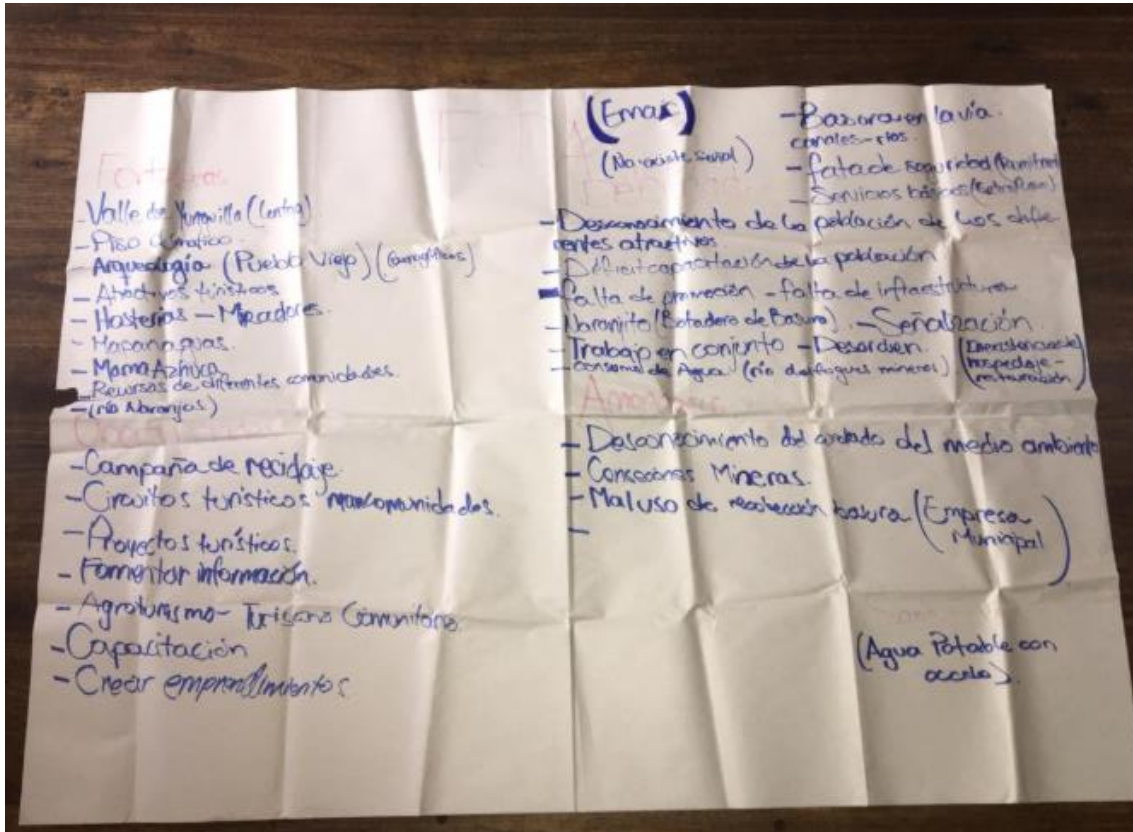 FODA
Fortalezas
- Valle de Yunguilla (Centro)
- Piso Climático.
- Arqueología (Pueblo Viejo)
- Atractivos turísticos
- Hosterias - Miradores.
- Mama Azhuca
- Recursos de diferentes comunidades.
- (río Naranjos)
- Campaña de reciclaje.
- Circuitos turísticos mancomunados.
- Proyectos turísticos.
- Fomentar información.
- Agroturismo - Turismo Comunitario.
- Capacitación
- Crear emprendimientos
(Emac)
(No existe señal)
- Basura en la vía.
canales - rios.
- fata de seguridad
- Servicios básicos
- Desconocimiento de la población de los dife
rentes atractivos
- Déficit capacitación de la población
- falta de promoción - falta de infraestructura
- Naranjito (Botadero de Basura). - Señalización.
- Trabajo en conjunto - Desorden.
- Consumo de Agua (río desfogues mineros)
(Inexistencia de
hospedaje -
restauración)
Amenazas
- Desconocimiento del cuidado del medio ambiente
- Conseciones Mineras.
- Mal uso de recolección basura (Empresa
Municipal)
-
(Agua Potable con
)